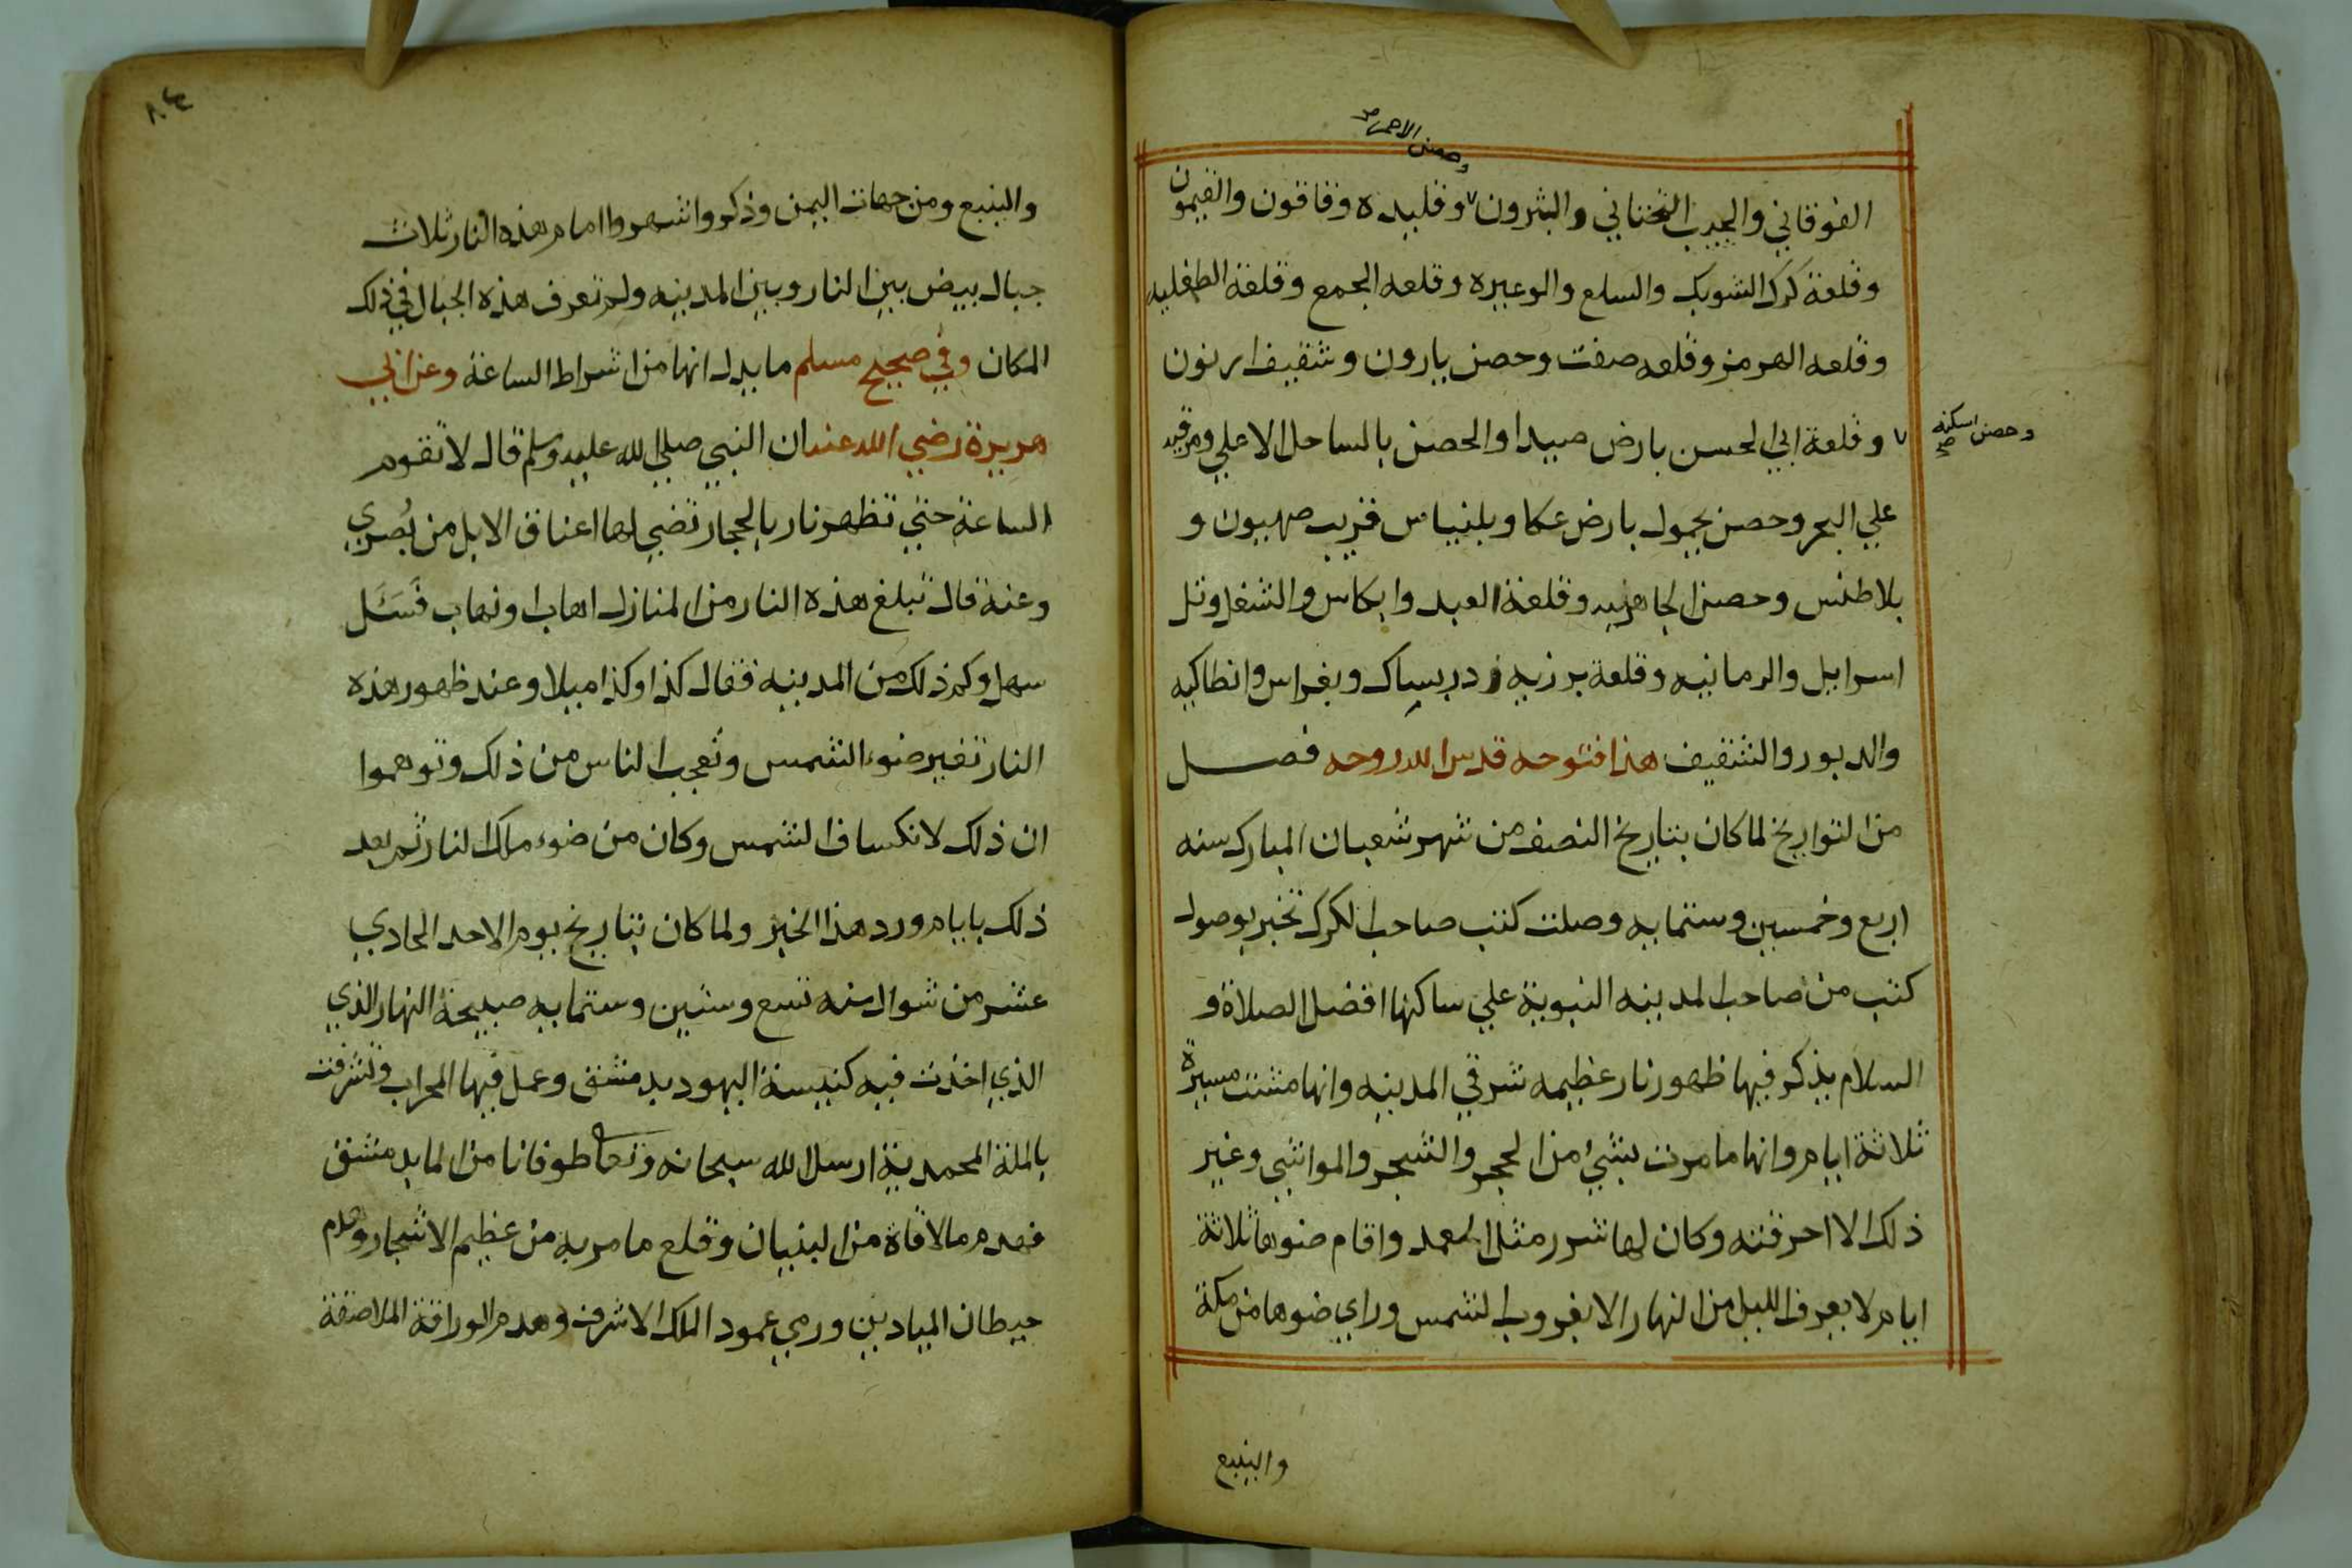 وحصن الاحمر صح
الفوقاني والجيب التحتاني والبثرون وقليده وقاقون والقيمون
وقلعة كرك الشوبك والسلع والوعيره وقلعه الجمع وقلعة الطفليه
وقلعه الهرمز وقلعه صفت وحصن يارون وشقيف ارنون
وحصن اسكندرونه صح
وقلعة ابي الحسن بارض صيدا والحصن بالساحل الاعلي ومرقيه
علي البحر وحصن يحمول بارض عكا وبلنياس قريب صهيون و
بلاطنس وحصن الجاهريه وقلعة العيد وابكاس والشغل وتل
اسراييل والرمانيه وقلعة برزيه ودربساك وبغراس وانطاكيه
والدبور والشقيف هذا فتوحه قدس الله روحه فصل
من التواريخ لما كان بتاريخ النصف من شهر شعبان المبارك سنه
اربع وخمسين وستمايه وصلت كتب صاحب الكرك تخبر بوصول
كتب من صاحب المدينه النبوية علي ساكنها افضل الصلاة و
السلام يذكر فيها ظهور نار عظيمه شرقي المدينه وانها مشت مسيرة
ثلاثة ايام وانها ما مرت بشيء من الحجر والشجر والمواشي وغير
ذلك الا احرقته وكان لها شرر مثل العمد واقام ضوها ثلاثة
ايام لا يعرف الليل من النهار الا بغروب الشمس وراي ضوها من مكة
والينبع
والينبع ومن جهات اليمن وذكروا انهم راوا امام هذه النار ثلاث
جبال بيض بين النار وبين المدينه ولم تعرف هذه الجبال في ذلك
المكان وفي صحيح مسلم ما يدل انها من اشراط الساعة وعن ابي
هريرة رضي الله عنه ان النبي صلي الله عليه وسلم قال لا تقوم
الساعة حتي تظهر نار بالحجار تضي لها اعناق الابل من بُصري
وعنه قال تبلغ هذه النار من المنازل اهاب او نهاب فسئل
سهل وكم ذلك من المدينه فقال كذا وكذا ميلا وعند ظهور هذه
النار تغير ضوء الشمس وتعجب الناس من ذلك وتوهموا
ان ذلك لانكساف الشمس وكان من ضوء ملك النار ثم بعد
ذلك بايام ورد هذا الخبر ولما كان بتاريخ يوم الاحد الحادي
عشر من شوال سنه تسع وستين وستمايه صبيحة النهار الذي
الذي اخذت فيه كنيسة اليهود بدمشق وعمل فيها المحراب وتشرفت
بالملة المحمدية ارسل الله سبحانه وتعا طوفانا من الما بدمشق
فهدم ما لاقاة من البنيان وقلع ما مر به من عظيم الاشجار وهدم
حيطان الميادين ورمي عمود الملك الاشرف وهدم الوراقة الملاصقة